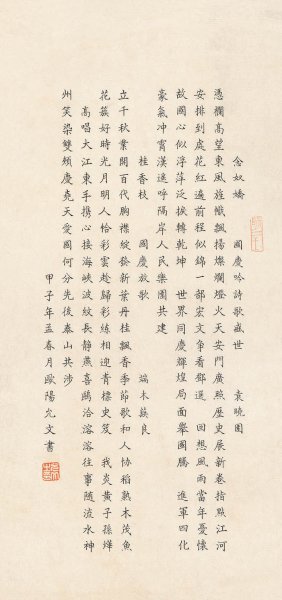 念奴嬌 國慶吟詩歌盛世 袁曉園
憑欄高望東風旌幟飄揚燦爛燈火天安門廣照歷史展新卷指點江河
安排到處花紅遍前程似錦一部宏文爭看鄧選 回想風雨當年憂懷
故國心似浮萍泛挨轉乾坤 世界同慶輝煌局面舉國騰 進軍四化
豪氣冲霄漢遙呼隔岸人民樂園共建
桂香枝 國慶放歌 端木蕻良
立千秋業開百代胸襟綻發新葉丹桂飄香季節歌和人協稻熟禾茂魚
花簇好時光月明人恰彩雲趁歸彩練相迎青標史笈 我炎黃子孫燁
高唱大江東手攜心接海峽波紋長靜燕喜鷗洽溶溶往事隨流水神
州笑染雙頰慶堯天愛國何分先後泰山共涉
甲子年孟春月歐陽允文書